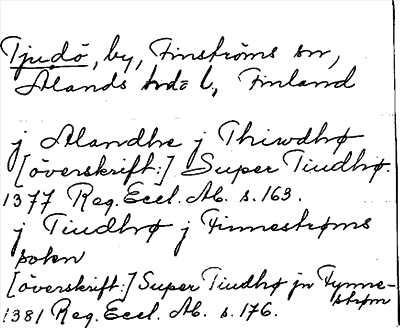 Tjudö, by, Finströms sn,
Ålands hd o l, Finland
j Alandhe j Thiwdhø
[överskrift:] Super Tiudhø.
1377 Reg. Eccl. Ab. s. 163.
j Tiudhø j Finnestrøms
sokn
[överskrift:] Super Tiudhø jn Fynne-
strøm
1381 Reg. Eccl. Ab. s. 176.